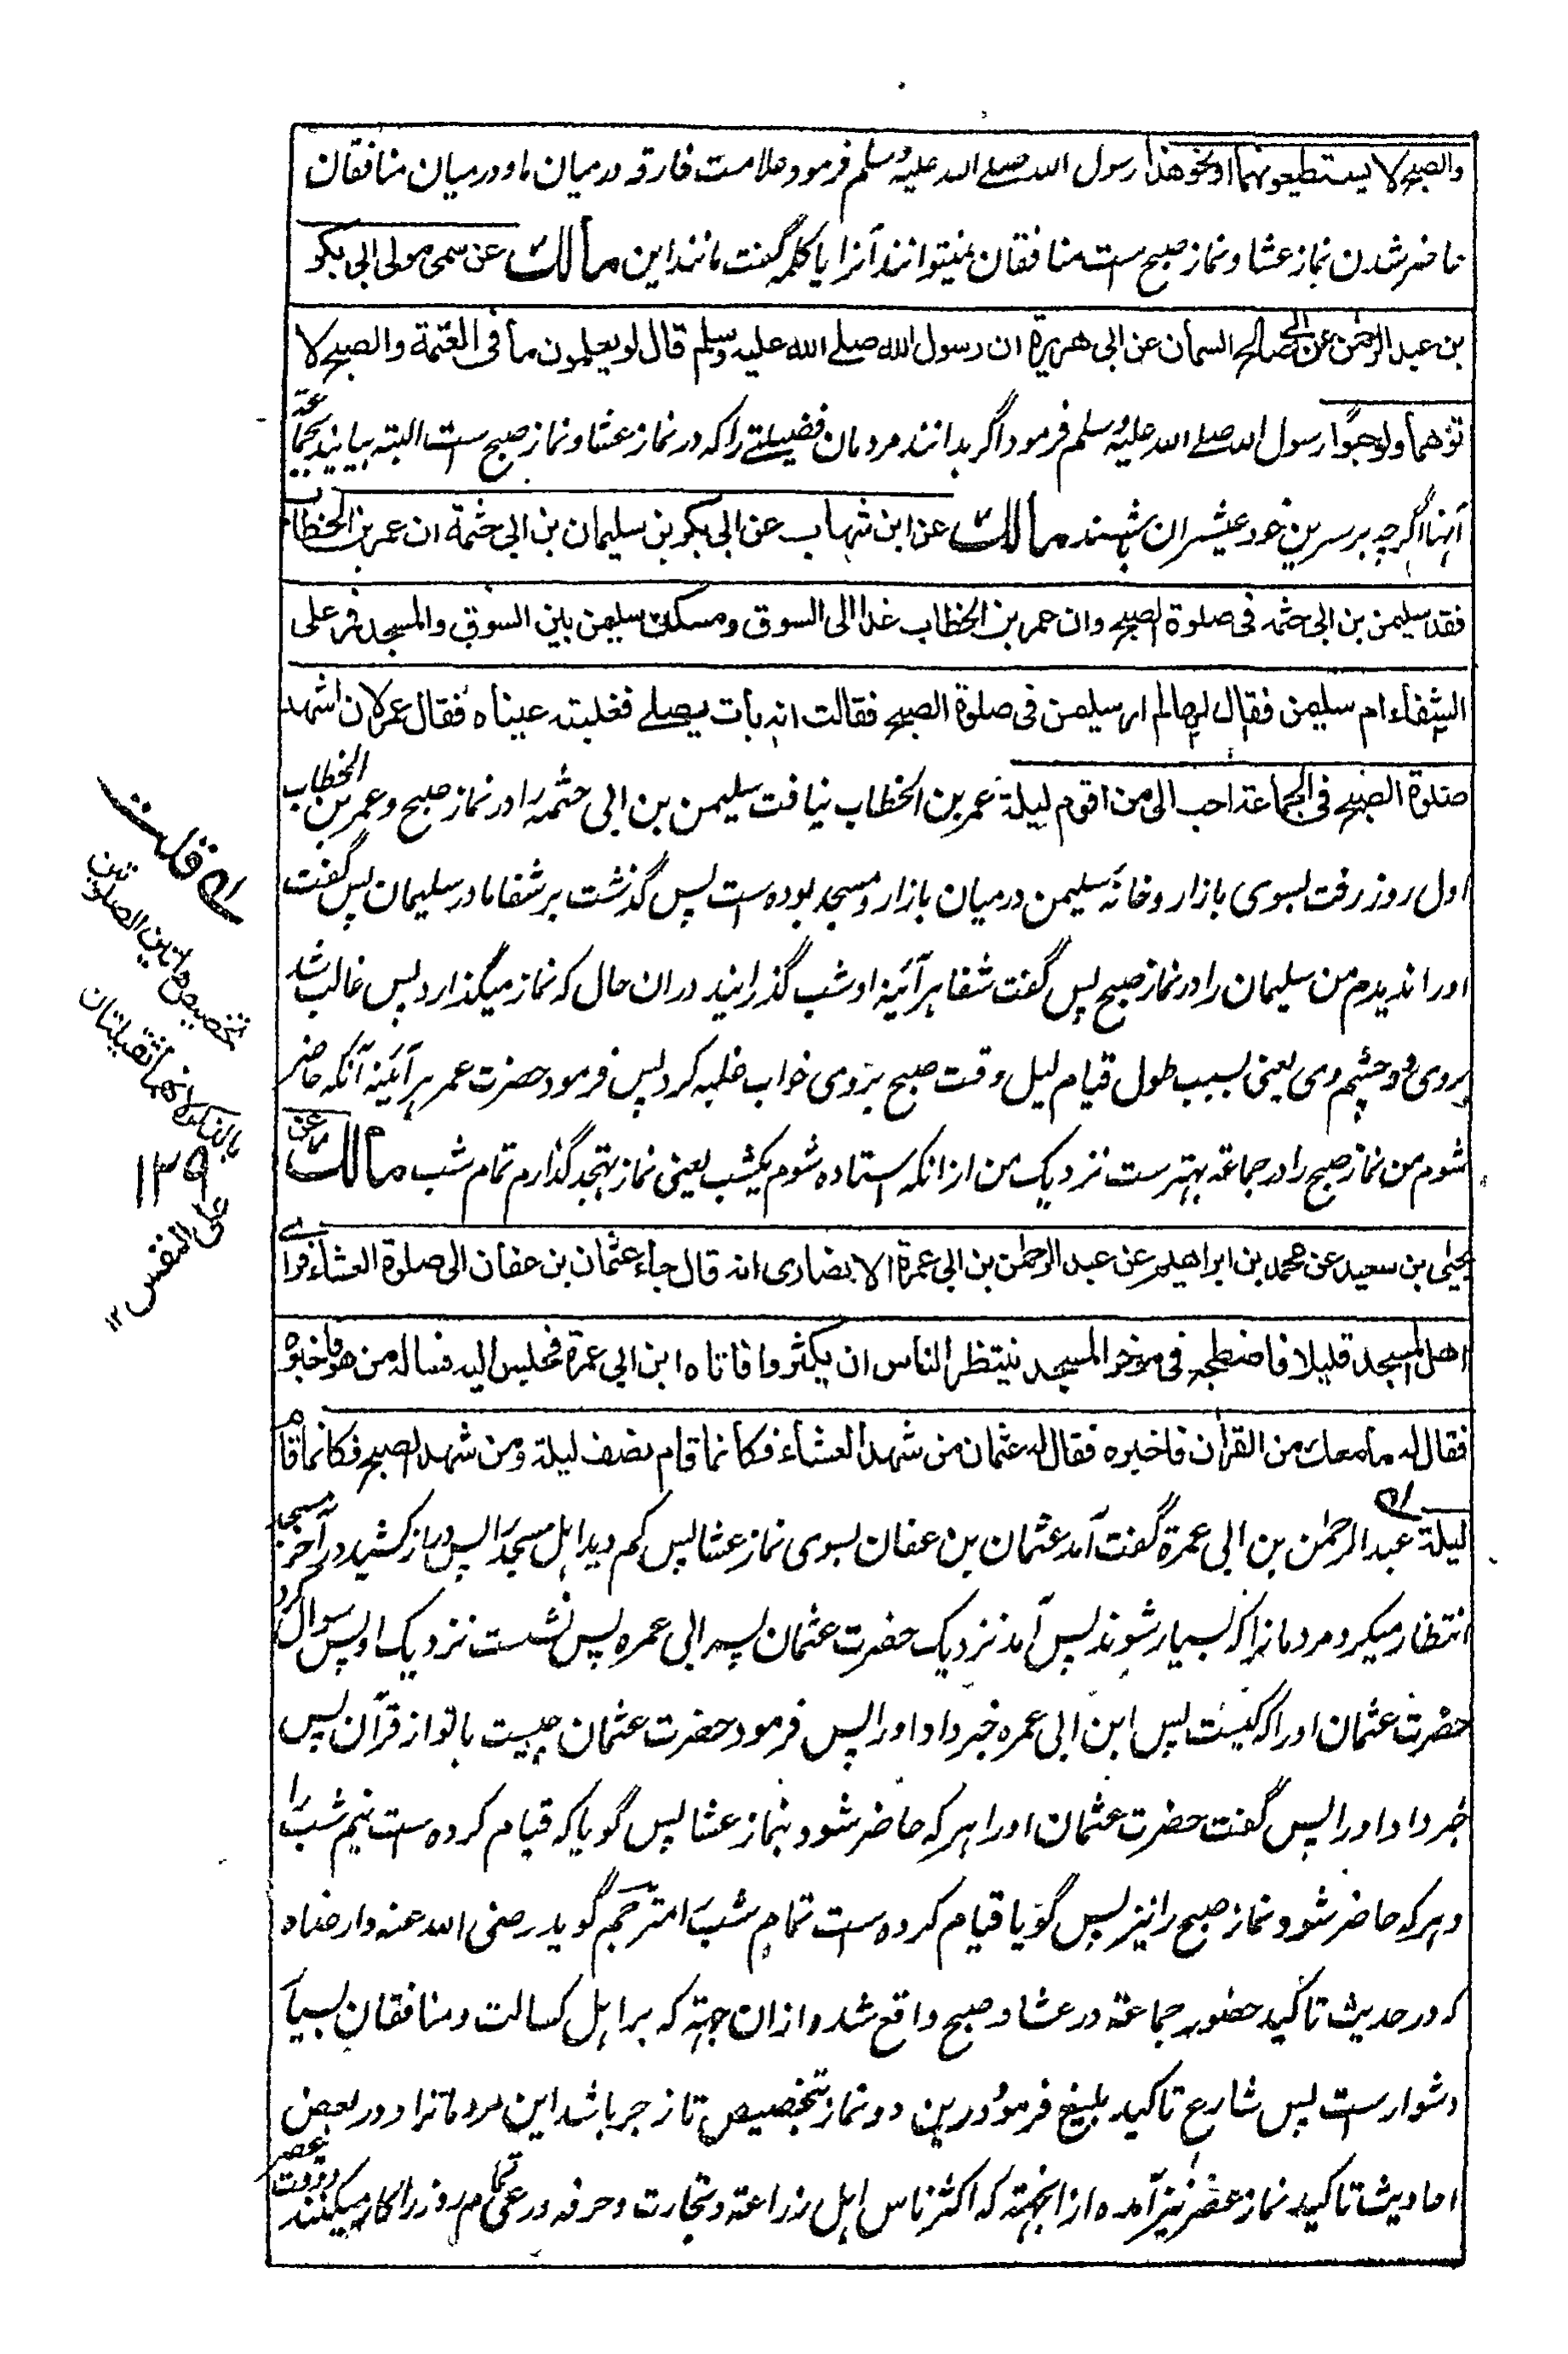 والصبح لا يستطيعونهما او نحو هذا رسول الله صلے الله عليه وسلم فرمود علامت فارقه درميان ما و درميان منافقان
حاضر شدن نماز عشا و نماز صبح ست منافقان نميتوانند آنرا يا كلمه گفت مانند اين مالك عن سمى مولى ابى بكر
بن عبد الرحمن عن ابى صالح السمان عن ابى هريرة ان رسول الله صلے الله عليه وسلم قال لو يعلمون ما فى العتمة والصبح لا
توهما ولو حبوا رسول الله صلے الله عليه وسلم فرمود اگر بدانند مردمان فضيلتے را كه در نماز عشا و نماز صبح ست البته بيايند بجماعة
آنها اگرچه بر سرين خود عيشران باشند مالك عن ابن شهاب عن ابى بكر بن سليمان بن ابى حثمة ان عمر بن الخطاب
فقد سليمن بن ابى حثمه فى صلوة الصبح وان عمر بن الخطاب غدا الى السوق ومسكن سليمن بين السوق والمسجد فمر على
الشفاء ام سليمن فقال لها لم ار سليمن فى صلوة الصبح فقالت انه بات يصلے فغلبته عيناه فقال عمر لان اشهد
صلوة الصبح فى الجماعة احب الى من اقوم ليلة عمر بن الخطاب نيافت سليمن بن ابى حثمه را در نماز صبح و عمر بن الخطاب
اول روز رفت بسوى بازار و خانهٔ سليمن درميان بازار و مسجد بوده ست پس گذشت بر شفا مادر سليمان پس گفت
او را نديدم من سليمان را در نماز صبح پس گفت شفا هر آئينه او شب گذرانيد در ان حال كه نماز ميگذارد پس غالب شد
بروى دو چشم وى يعنى بسبب طول قيام ليل وقت صبح بر وى خواب غلبه كرد پس فرمود حضرت عمر هر آئينه آنكه حاضر
شوم من نماز صبح را در جماعة بهتر ست نزديك من از انكه استاده شوم يكشب يعنى نماز تهجد گذارم تمام شب مالك عن
يحيى بن سعيد عن محمد بن ابراهيم عن عبد الرحمن بن ابى عمرة الانصارى انه قال جاء عثمان بن عفان الى صلوة العشاء فراى
اهل المسجد قليلا فاضطجع فى مؤخر المسجد ينتظر الناس ان يكثروا فاتاه ابن ابى عمرة فجلس اليه فساله من هو فاخبره
فقال له ما معك من القرآن فاخبره فقال له عثمان من شهد العشاء فكانما قام نصف ليلة ومن شهد الصبح فكانما قام
ليلة عبد الرحمن بن ابى عمرة گفت آمد عثمان بن عفان بسوى نماز عشا پس كم ديد اهل مسجد را پس دراز كشيد در آخر مسجد
انتظار ميكرد مردمانرا كه بسيار شوند پس آمد نزديك حضرت عثمان پسر ابى عمره پس نشست نزديك او پس سوال كرد
حضرت عثمان او را كه كيست پس ابن ابى عمره خبر داد او را پس فرمود حضرت عثمان چيست با تو از قرآن پس
خبر داد او را پس گفت حضرت عثمان او را هر كه حاضر شود بنماز عشا پس گويا كه قيام كرده ست نيم شب را
و هر كه حاضر شود نماز صبح را نيز پس گويا قيام كرده ست تمام شب را مترجم گويد رضى الله عنه وارضاه
كه در حديث تاكيد حضور جماعة در عشا و صبح واقع شده از ان جهة كه بر اهل كسالت و منافقان بسيار
دشوار ست پس شارع تاكيد بليغ فرمود درين دو نماز بتخصيص تا زجر باشد اين مردمانرا و در بعض
احاديث تاكيد نماز عصر نيز آمده از انجهة كه اكثر ناس اهل زراعة و تجارت و حرفه در عى تمام روز را كار ميكنند و وقت عصر
قلت
تخصيص هاتين الصلوتين
بالذكر لانهما ثقيلتان
على النفس ١٢
١٣٩